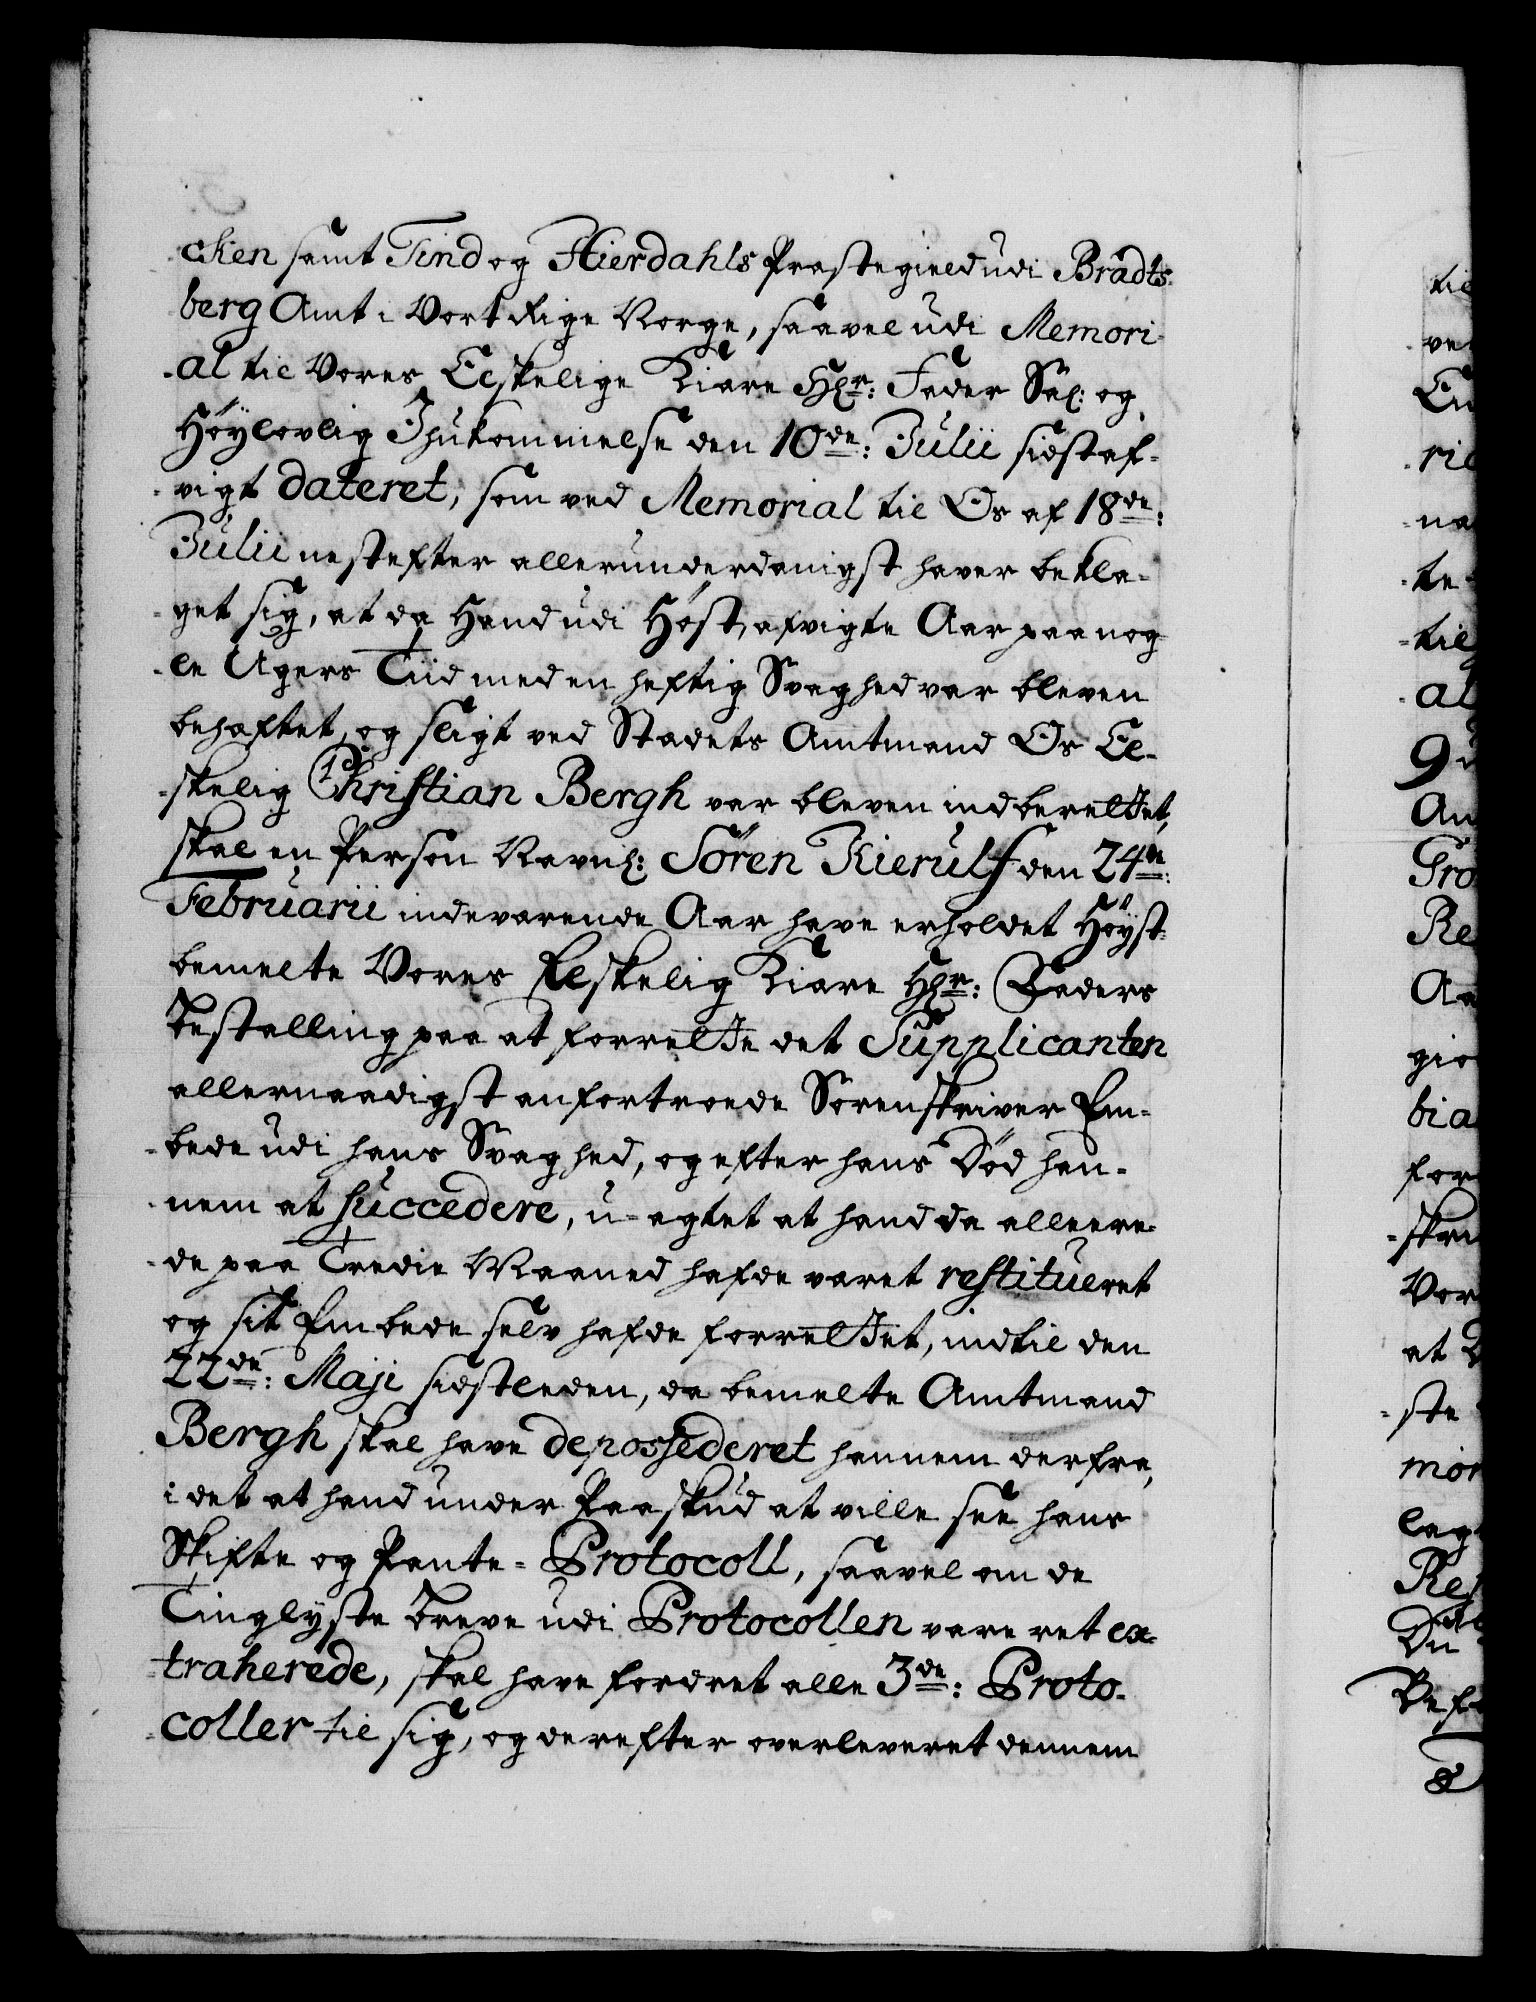 cken samt Tind og Hierdahls Præstegield udi Bradts-
berg Amt i Vort Rige Norge, saavel udi Memori-
-al til Vores Elskelige Kiære Hr: Fader Sal: og
Höylovlig Ihukommelse den 10de: Julii sidst af-
-vigt dateret, som ved Memorial til Os af 18de:
Julii nestefter allerunderdanigst haver bekla-
-get sig, at da Hand udi Höst, afvigte Aar paa nog-
-le Ugers Tiid med en heftig Svaghed var bleven
behæftet, og sligt ved Stadets Amtmand Os El-
-skelig Christian Bergh var bleven indberettet,
skal en Person Navnl: Sören Kierulf den 24de:
Februarii indeværende Aar have erholdet Höyst-
bemelte Vores Elskelig Kiære Hr: Faders
Bestalling paa at forrette det Supplicanten
allernaadigst anfortroede Sorenskriver Em-
-bede udi hans Svaghed, og efter hans Död han-
-nem at succedere, u-agtet at hand da allere-
-de paa Tredie Maaned hafde været restitueret
og sit Embede selv hafde forrettet, indtil den
22de: Maji sidstleden, da bemelte Amtmand
Bergh skal have depossederet hannem derfra,
i det at hand under Paaskud at ville see hans
Skifte og Pante-Protocoll, saavel om de
Tinglyste Breve udi Protocollen vare ret ex-
-traherede, skal have fordret alle 3de: Proto-
-coller til sig, og derefter overleveret dennem